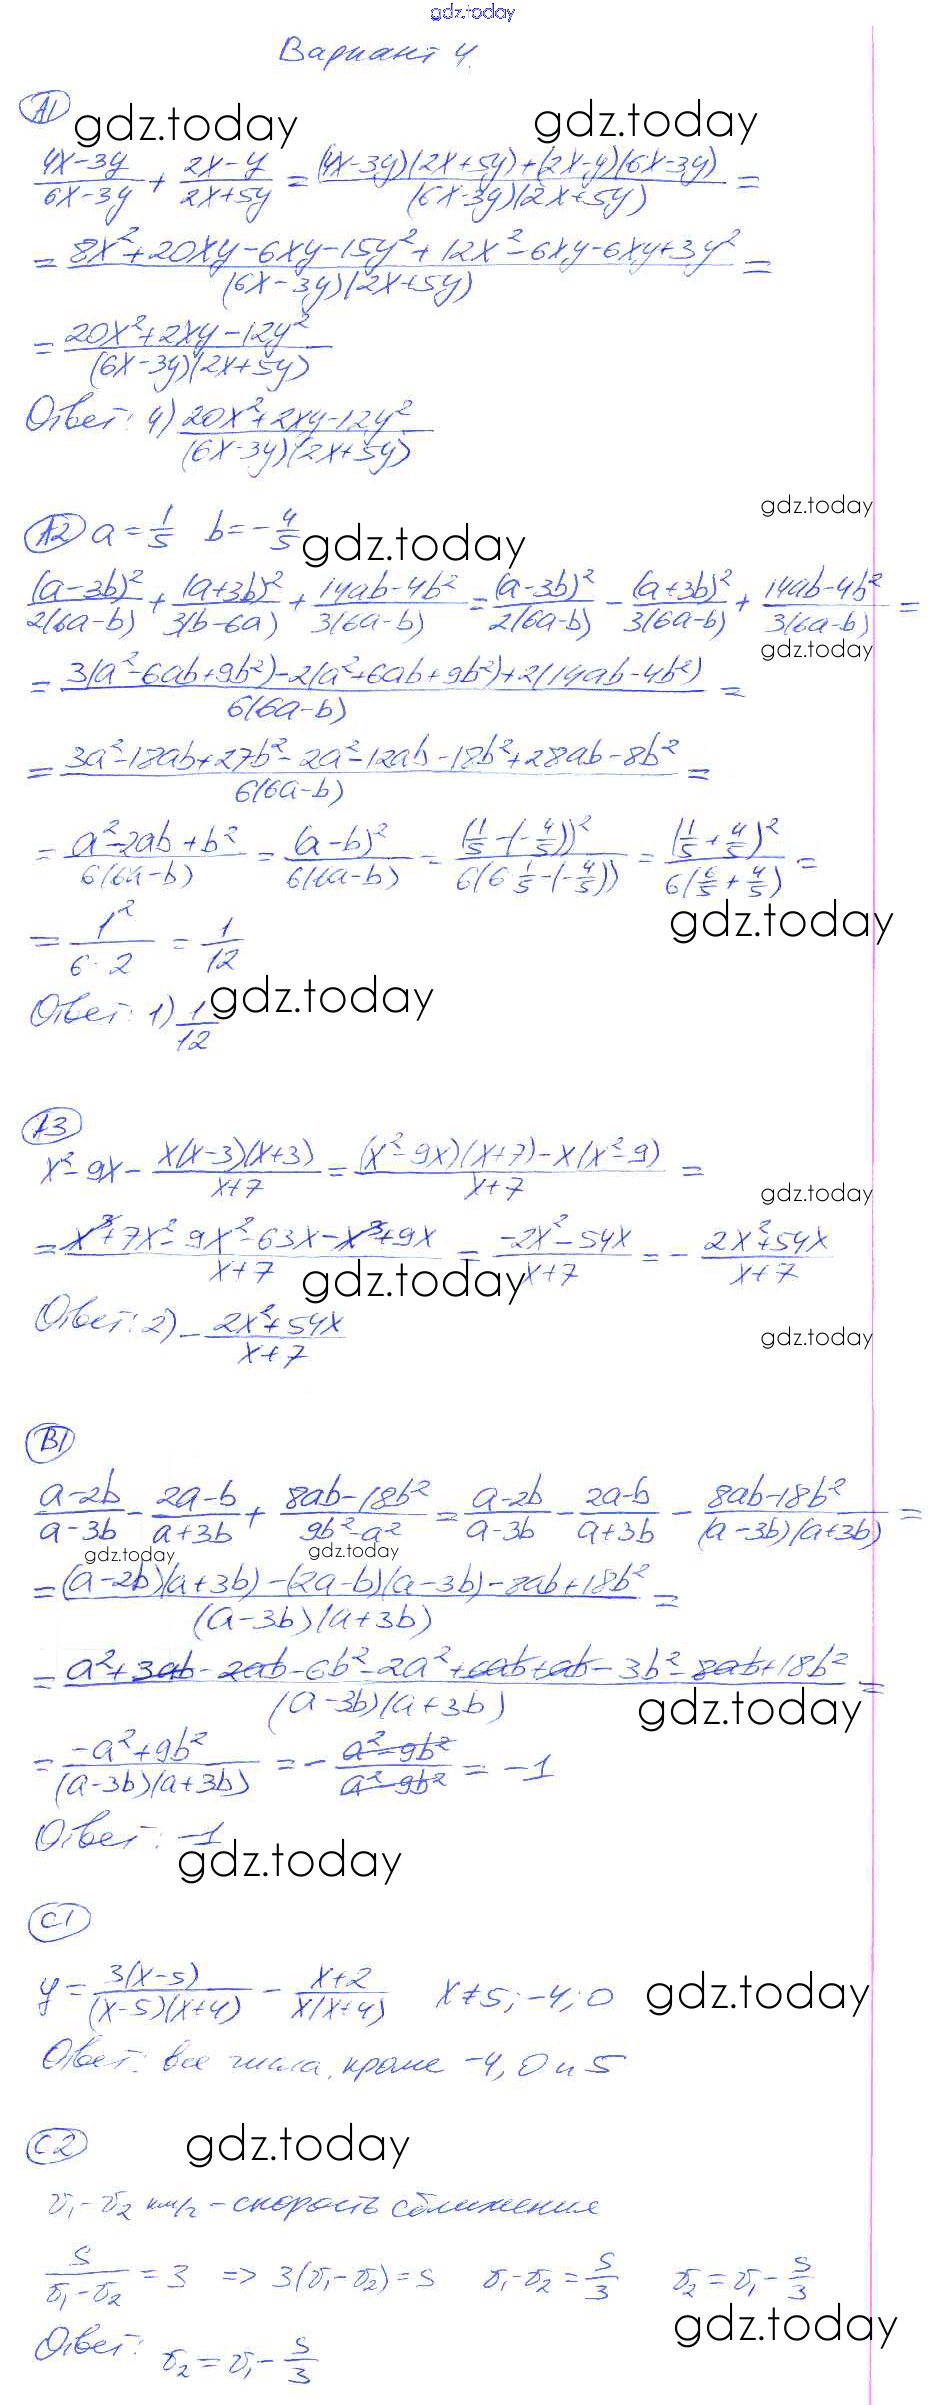 gdz.today
Вариант 4.
A1
gdz.today gdz.today
(4x-3y)/(6x-3y) + (2x-y)/(2x+5y) = ((4x-3y)(2x+5y)+(2x-y)(6x-3y))/((6x-3y)(2x+5y)) =
= (8x²+20xy-6xy-15y²+12x²-6xy-6xy+3y²)/((6x-3y)(2x+5y)) =
= (20x²+2xy-12y²)/((6x-3y)(2x+5y))
Ответ: 4) (20x²+2xy-12y²)/((6x-3y)(2x+5y))
gdz.today
A2 a = 1/5 b = -4/5 gdz.today
(a-3b)²/(2(6a-b)) + (a+3b)²/(3(b-6a)) + (14ab-4b²)/(3(6a-b)) = (a-3b)²/(2(6a-b)) - (a+3b)²/(3(6a-b)) + (14ab-4b²)/(3(6a-b)) =
gdz.today
= (3(a²-6ab+9b²)-2(a²+6ab+9b²)+2(14ab-4b²))/(6(6a-b)) =
= (3a²-18ab+27b²-2a²-12ab-18b²+28ab-8b²)/(6(6a-b)) =
= (a²-2ab+b²)/(6(6a-b)) = (a-b)²/(6(6a-b)) = (1/5-(-4/5))²/(6(6 1/5-(-4/5))) = (1/5+4/5)²/(6(6/5+4/5)) =
gdz.today
= 1²/(6·2) = 1/12
Ответ: 1) 1/12 gdz.today
A3
x²-9x - x(x-3)(x+3)/(x+7) = ((x²-9x)(x+7)-x(x²-9))/(x+7) =
gdz.today
= (x³+7x²-9x²-63x-x³+9x)/(x+7) = (-2x²-54x)/(x+7) = - (2x²+54x)/(x+7)
gdz.today
Ответ: 2) - (2x²+54x)/(x+7)
gdz.today
B1
(a-2b)/(a-3b) - (2a-b)/(a+3b) + (8ab-18b²)/(9b²-a²) = (a-2b)/(a-3b) - (2a-b)/(a+3b) - (8ab-18b²)/((a-3b)(a+3b)) =
gdz.today gdz.today
= ((a-2b)(a+3b)-(2a-b)(a-3b)-8ab+18b²)/((a-3b)(a+3b)) =
= (a²+3ab-2ab-6b²-2a²+6ab+ab-3b²-8ab+18b²)/((a-3b)(a+3b)) =
gdz.today
= (-a²+9b²)/((a-3b)(a+3b)) = - (a²-9b²)/(a²-9b²) = -1
Ответ: -1
gdz.today
C1
y = 3(x-5)/((x-5)(x+4)) - (x+2)/(x(x+4)) x≠5; -4; 0 gdz.today
Ответ: все числа, кроме -4, 0 и 5
C2 gdz.today
v₁-v₂ км/ч - скорость сближения
s/(v₁-v₂) = 3 => 3(v₁-v₂)=s v₁-v₂ = s/3 v₂ = v₁ - s/3
gdz.today
Ответ: v₂ = v₁ - s/3